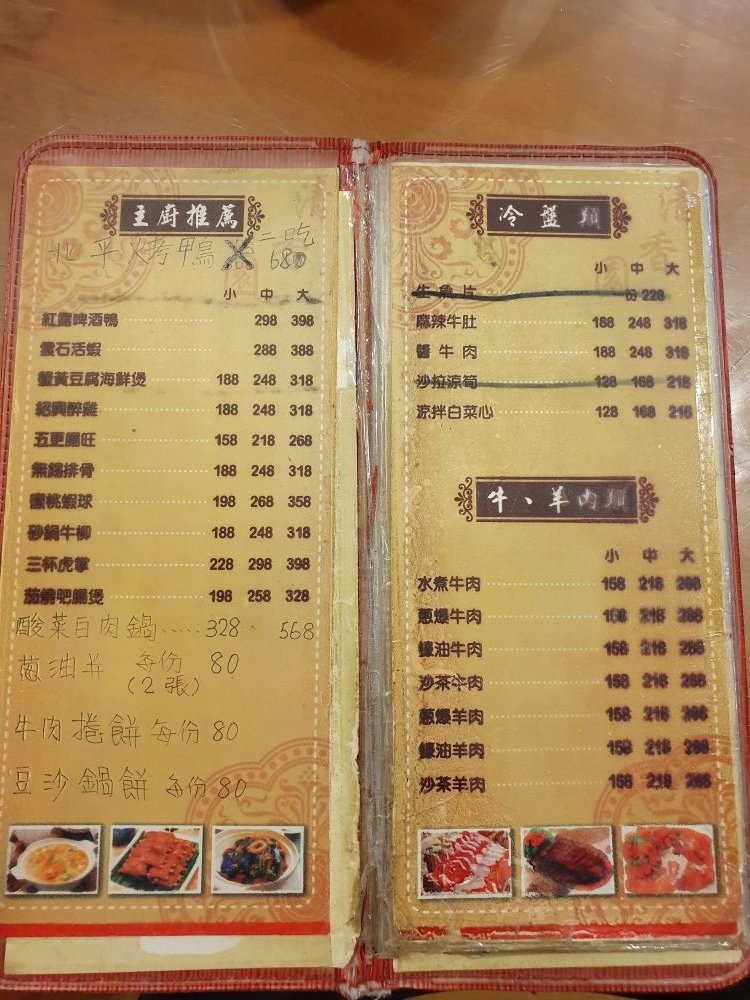 主廚推薦
北平烤鴨 二吃 680
小 中 大
紅露啤酒鴨 298 398
雲石活蝦 288 388
蟹黃豆腐海鮮煲 188 248 318
紹興醉雞 188 248 318
五更腸旺 158 218 268
無錫排骨 188 248 318
蜜桃蝦球 198 268 358
砂鍋牛柳 188 248 318
三杯虎掌 228 298 398
茄燒肥腸煲 198 258 328
酸菜白肉鍋..... 328. 568
蔥油 每份 80
(2張)
牛肉捲餅 每份 80
豆沙鍋餅 每份 80
冷盤類
小 中 大
生魚片 份 228
麻辣牛肚 188 248 318
醬牛肉 188 248 318
沙拉涼筍 128 168 218
涼拌白菜心 128 168 218
牛、羊肉類
小 中 大
水煮牛肉 158 218 268
蔥爆牛肉 158 218 268
蠔油牛肉 158 218 268
沙茶牛肉 158 218 268
蔥爆羊肉 158 218 268
蠔油羊肉 158 218 268
沙茶羊肉 158 218 268